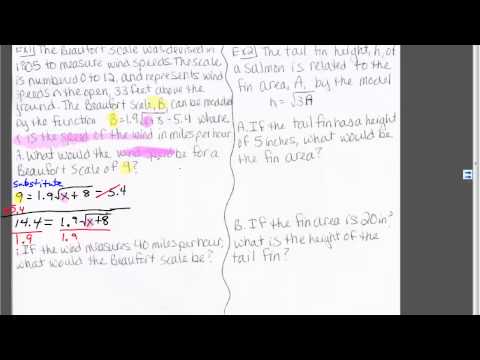 Ex1) The Beaufort Scale was devised in
1805 to measure wind speeds. The scale
is numbered 0 to 12, and represents wind
speeds in the open, 33 feet above the
ground. The Beaufort Scale, B, can be modeled
by the function B=1.9√x+8 - 5.4 where
x is the speed of the wind in miles per hour
A. What would the wind speed be for a
Beaufort Scale of 9?
Substitute
9 = 1.9√x+8 - 5.4
+5.4
14.4 = 1.9√x+8
1.9 1.9
: If the wind measures 40 miles per hour,
what would the Beaufort Scale be?
Ex2) The tail fin height, h, of
a salmon is related to the
fin area, A, by the model
h=√3A
A. If the tail fin has a height
of 5 inches, what would be
the fin area?
B. If the fin area is 20 in²
what is the height of the
tail fin?